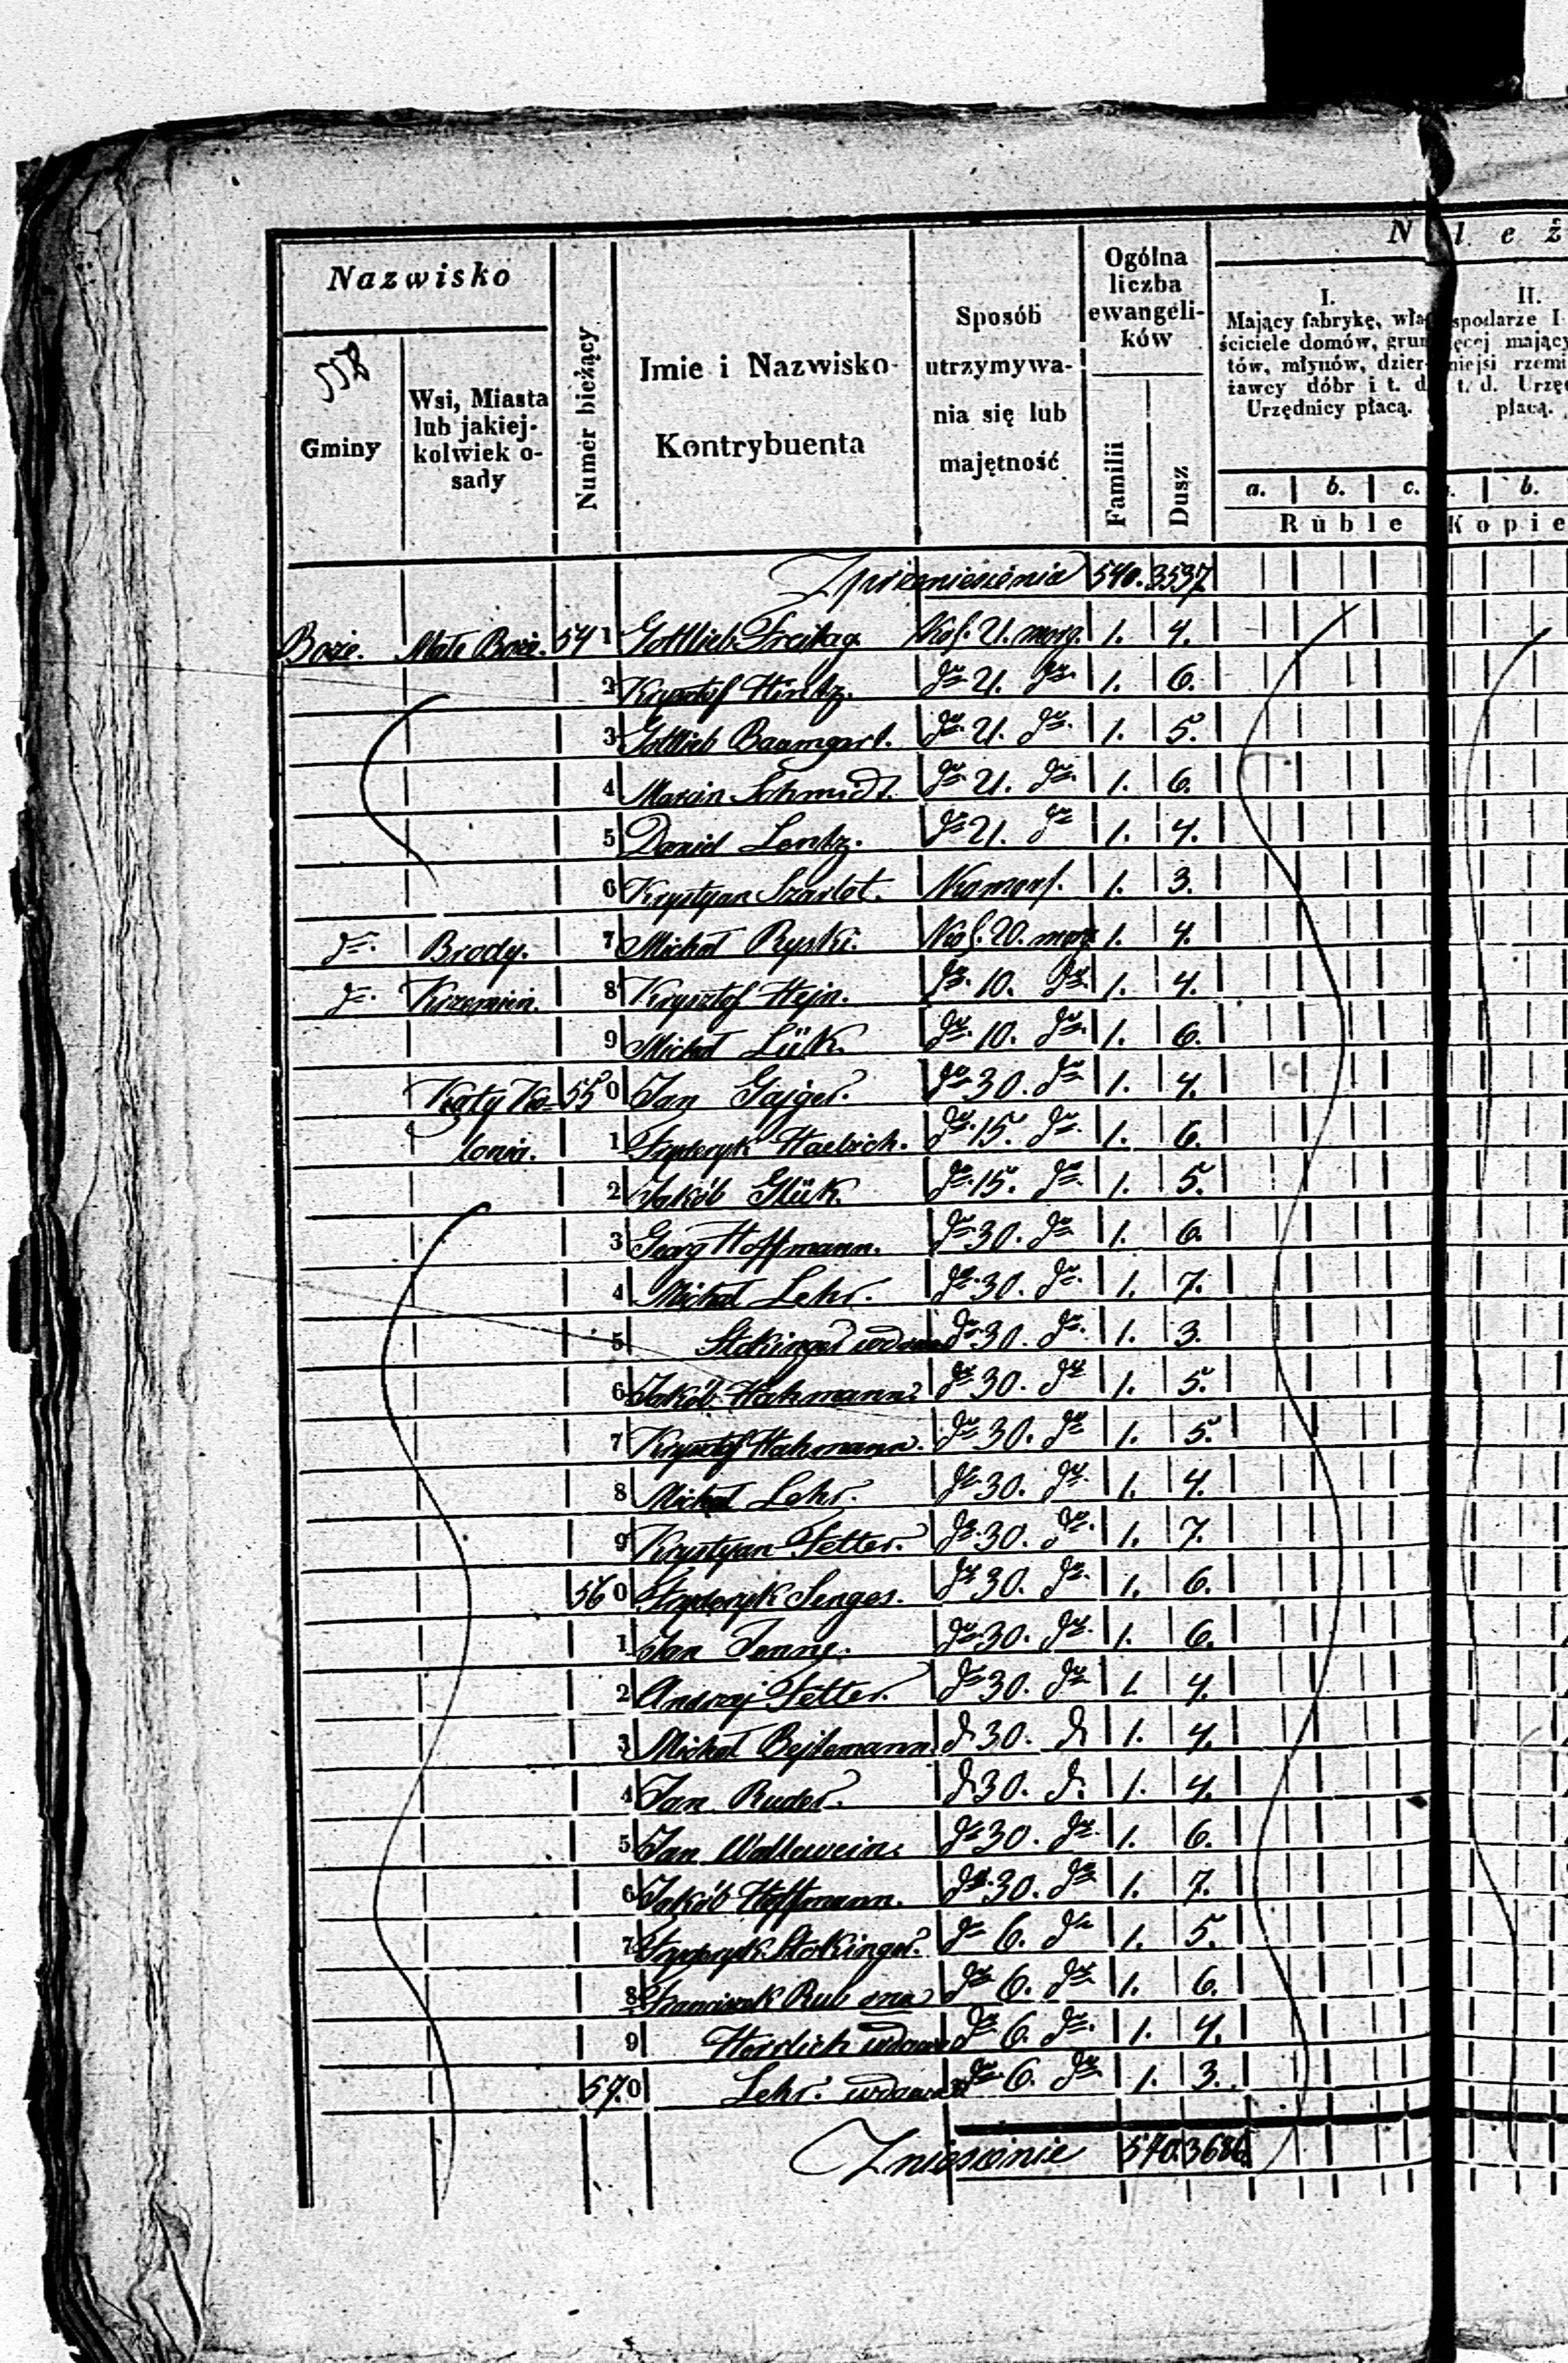 Nazwisko
558
Gminy
Wsi, Miasta lub jakiej-kolwiek o-sady
Numer bieżący
Imie i Nazwisko
Kontrybuenta
Sposób utrzymywa-nia się lub majętność
Ogólna liczba ewangeli-ków
Familii
Dusz
N l e ż
I.
Mający fabrykę, wła
ściciele domów, grun
tów, młynów, dzier-
żawcy dóbr i t. d.
Urzędnicy płacą.
II.
spodarze I
ęcej mający
niejsi rzemi
t. d. Urzę
płacą.
a. b. c. b.
Ruble Kopie
Z przeniesienia 540. 3537
Boże. Małe Boże. 54 1 Gottlieb Freitag. Kol. 21. morg. 1. 4.
2 Krysztof Hintz. do 21. do 1. 6.
3 Gottlieb Baumgart. do 21. do 1. 5.
4 Marcin Schmidt. do 21. do 1. 6.
5 Daniel Lentz. do 21. do 1. 4.
6 Krystyan Szarlot. Komor. 1. 3.
do Brody. 7 Michał Ryski. Kol. 20. morg 1. 4.
do Krzemień. 8 Krysztof Hejn. do 10. do 1. 4.
9 Michał Lük. do 10. do 1. 6.
Kąty Ko- 55 0 Jan Gajger. do 30. do 1. 4.
lonia. 1 Fryderyk Haelrich. do 15. do 1. 6.
2 Jakób Glük. do 15. do 1. 5.
3 Georg Hoffmann. do 30. do 1. 6.
4 Michał Lehr. do 30. do 1. 7.
5 Stokinger wdowa do 30. do 1. 3.
6 Jakób Hahmann. do 30. do 1. 5.
7 Krysztof Hahmann. do 30. do 1. 5.
8 Michał Lehr. do 30. do 1. 4.
9 Krystyan Fetter. do 30. do 1. 7.
56 0 Fryderyk Senges. do 30. do 1. 6.
1 Jan Jenny. do 30. do 1. 6.
2 Andrzej Fetter. do 30. do 1. 4.
3 Michał Bejtemann. do 30. do 1. 4.
4 Jan Ruder. do 30. do 1. 4.
5 Jan Wallewein. do 30. do 1. 6.
6 Jakób Hoffmann. do 30. do 1. 7.
7 Fryderyk Stokinger. do 6. do 1. 5.
8 Franciszek Rub do 6. do 1. 6.
9 Herrlich wdowa do 6. do 1. 4.
57. 0 Lehr. wdowa do 6. do 1. 3.
Zniesienie 570. 3686